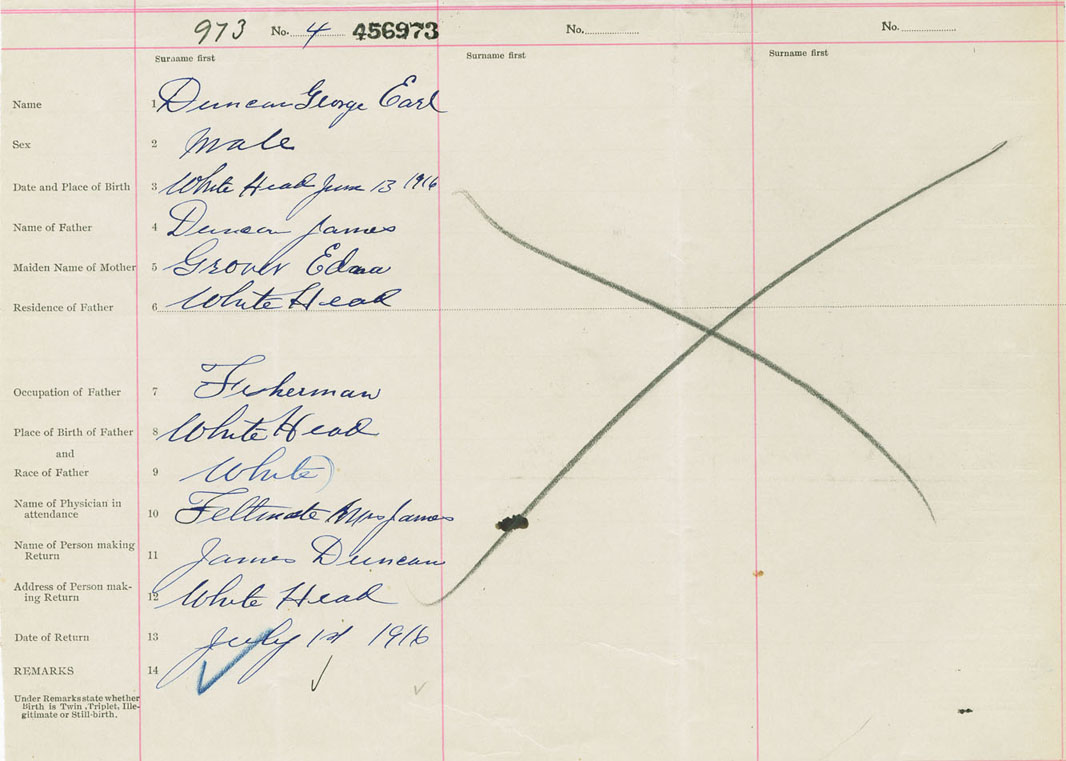 973 No. 4 456973 No. No.
Surname first Surname first Surname first
Name 1 Duncan George Earl
Sex 2 Male
Date and Place of Birth 3 White Head June 13 1916
Name of Father 4 Duncan James
Maiden Name of Mother 5 Grover Edna
Residence of Father 6 White Head
Occupation of Father 7 Fisherman
Place of Birth of Father 8 White Head
and
Race of Father 9 White
Name of Physician in
attendance 10 Feltmate Mrs James
Name of Person making
Return 11 James Duncan
Address of Person mak-
ing Return 12 White Head
Date of Return 13 July 1st 1916
REMARKS 14
Under Remarks state whether
Birth is Twin, Triplet, Ille-
gitimate or Still-birth.